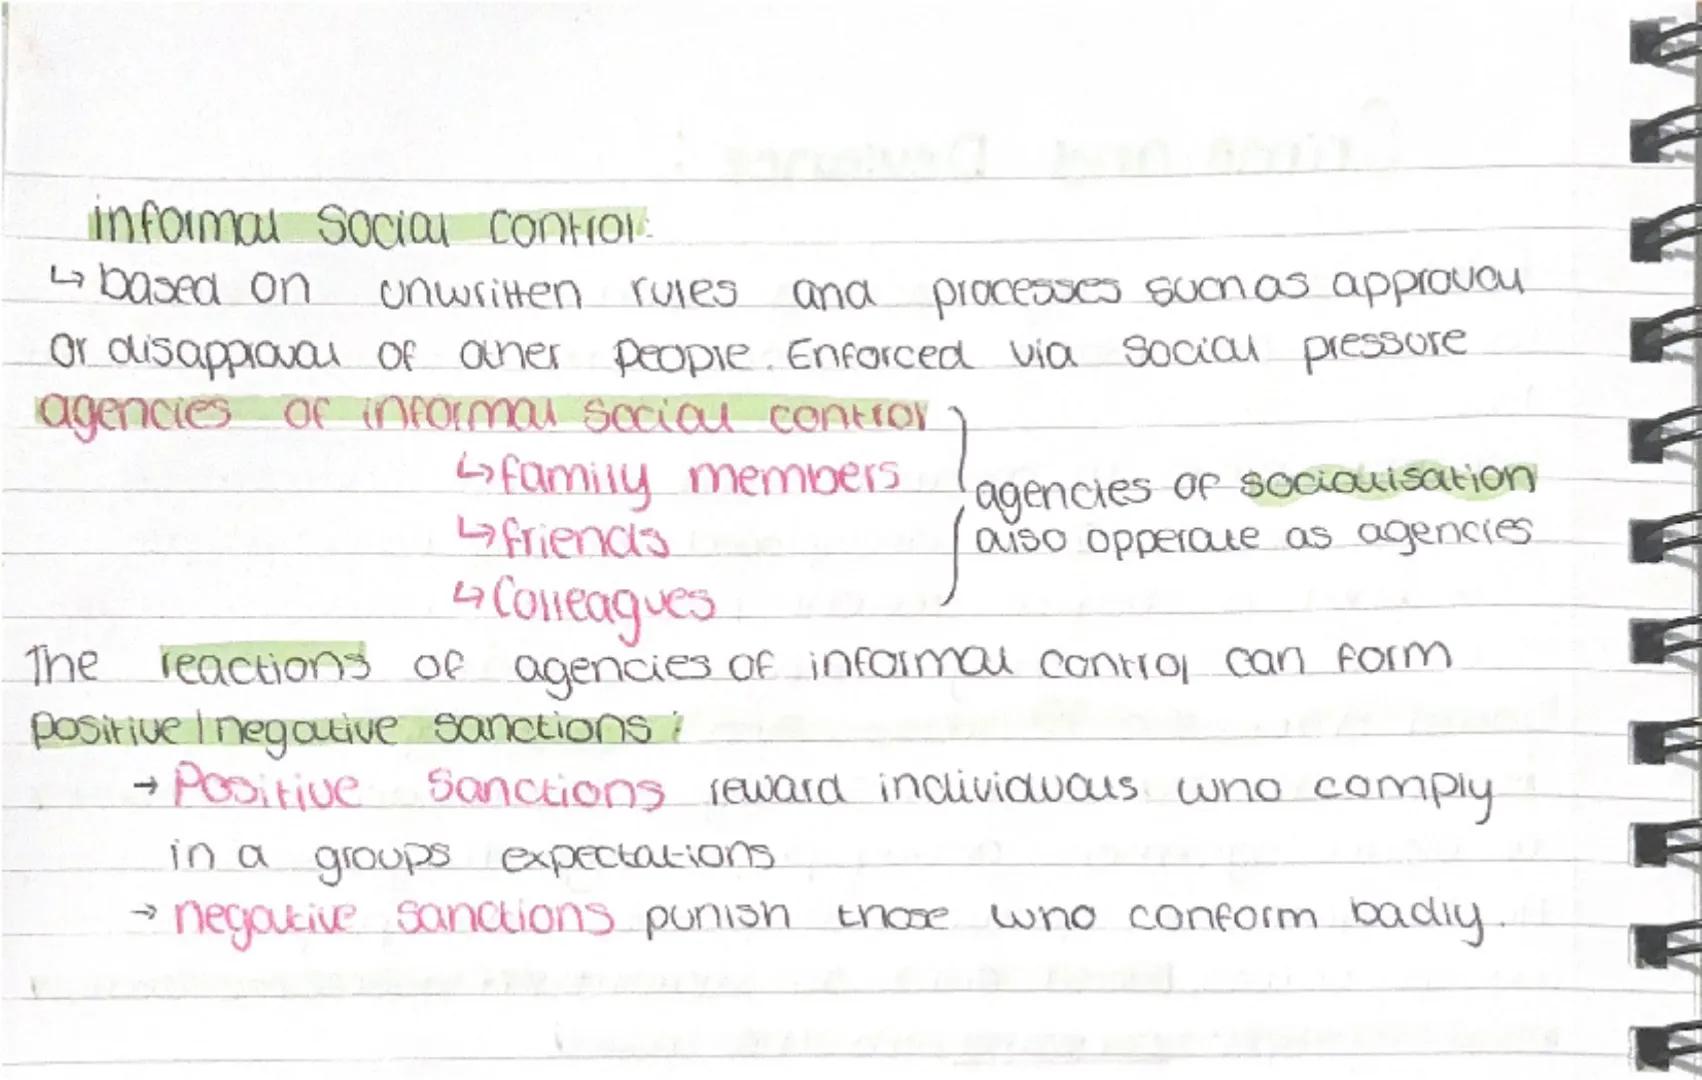 informal Social Control:
↳ based on unwritten rules and processes such as approval
or disapproval of other people. Enforced via social pressure
agencies of informal social control
↳ family members
agencies of socialisation
↳ friends
also opperate as agencies
↳ Colleagues
The reactions of agencies of informal control can form
positive / negative sanctions:
→ Positive Sanctions reward individuals who comply
in a groups expectations
→ negative sanctions punish those who conform badly.
Crime and Deviance: